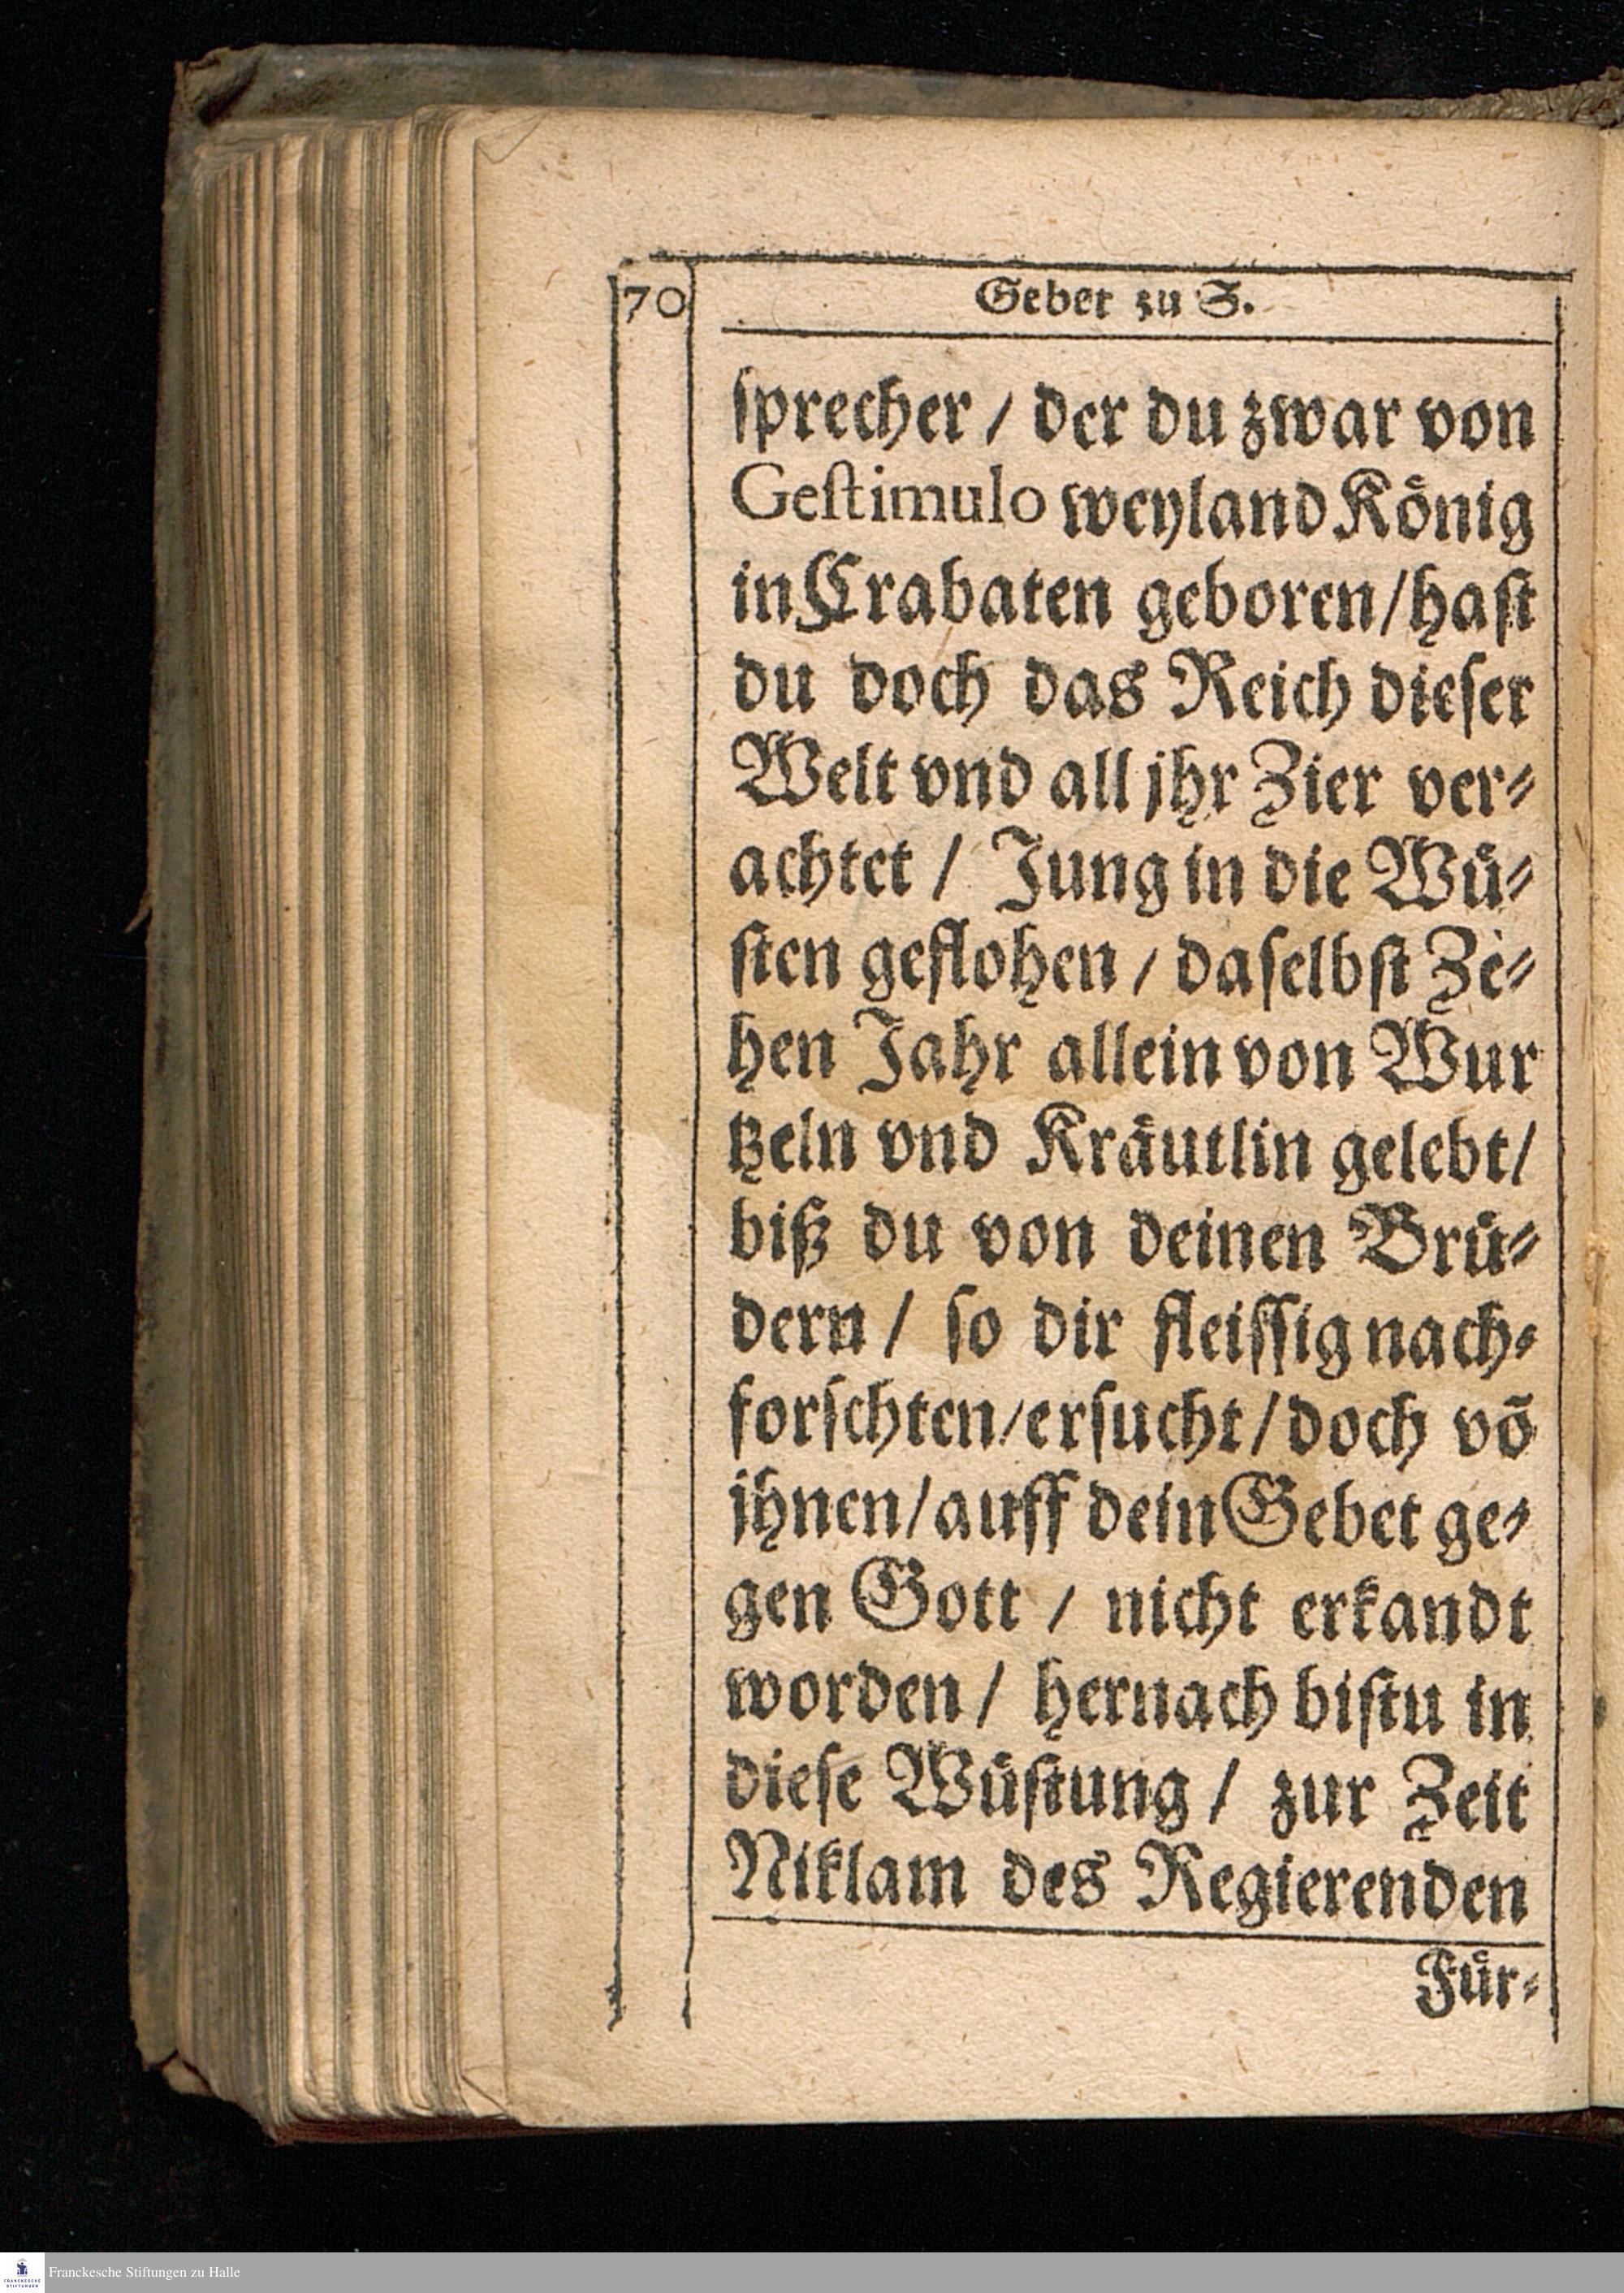 70 Gebet zu S.
ſprecher / der du zwar von
Geſtimulo weyland König
in Crabaten geboren / haſt
du doch das Reich dieſer
Welt vnd all jhr Zier ver⸗
achtet / Jung in die Wü⸗
ſten geflohen / daſelbſt Ze⸗
hen Jahr allein von Wur
tzeln vnd Kräutlin gelebt /
biß du von deinen Brü⸗
dern / ſo dir fleiſſig nach⸗
forſchten / erſucht / doch võ
jhnen / auff dein Gebet ge⸗
gen Gott / nicht erkandt
worden / hernach biſtu in
dieſe Wüſtung / zur Zeit
Niklam des Regierenden
Für⸗
Franckesche Stiftungen zu Halle
FRANCKESCHE
STIFTUNGEN